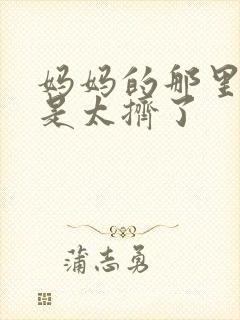 妈妈的那里
是太擠了
蒲志勇